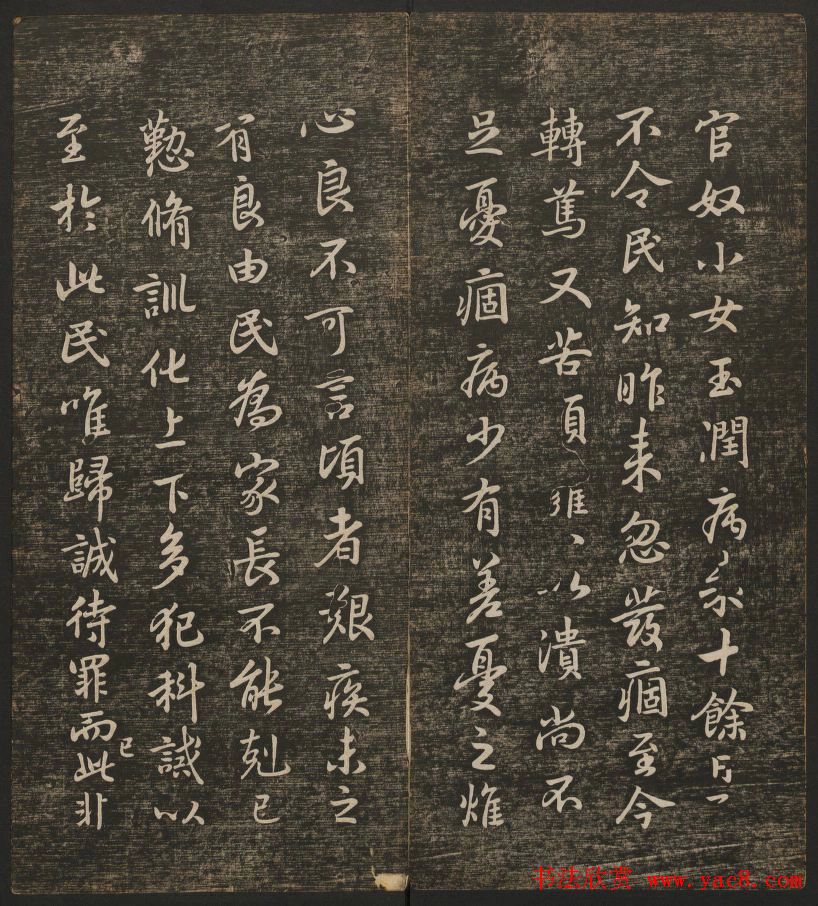 官奴小女玉潤病來十餘日
不令民知昨來忽發痼至今
轉篤又苦頭癰癰以潰尚不
足憂痼病少有差憂之燋
心良不可言頃者艱疾未之
有良由民為家長不能剋己
懃脩訓化上下多犯科誡以
至於此民唯歸誠待罪而此非
已
书法欣赏 www.yac8.com